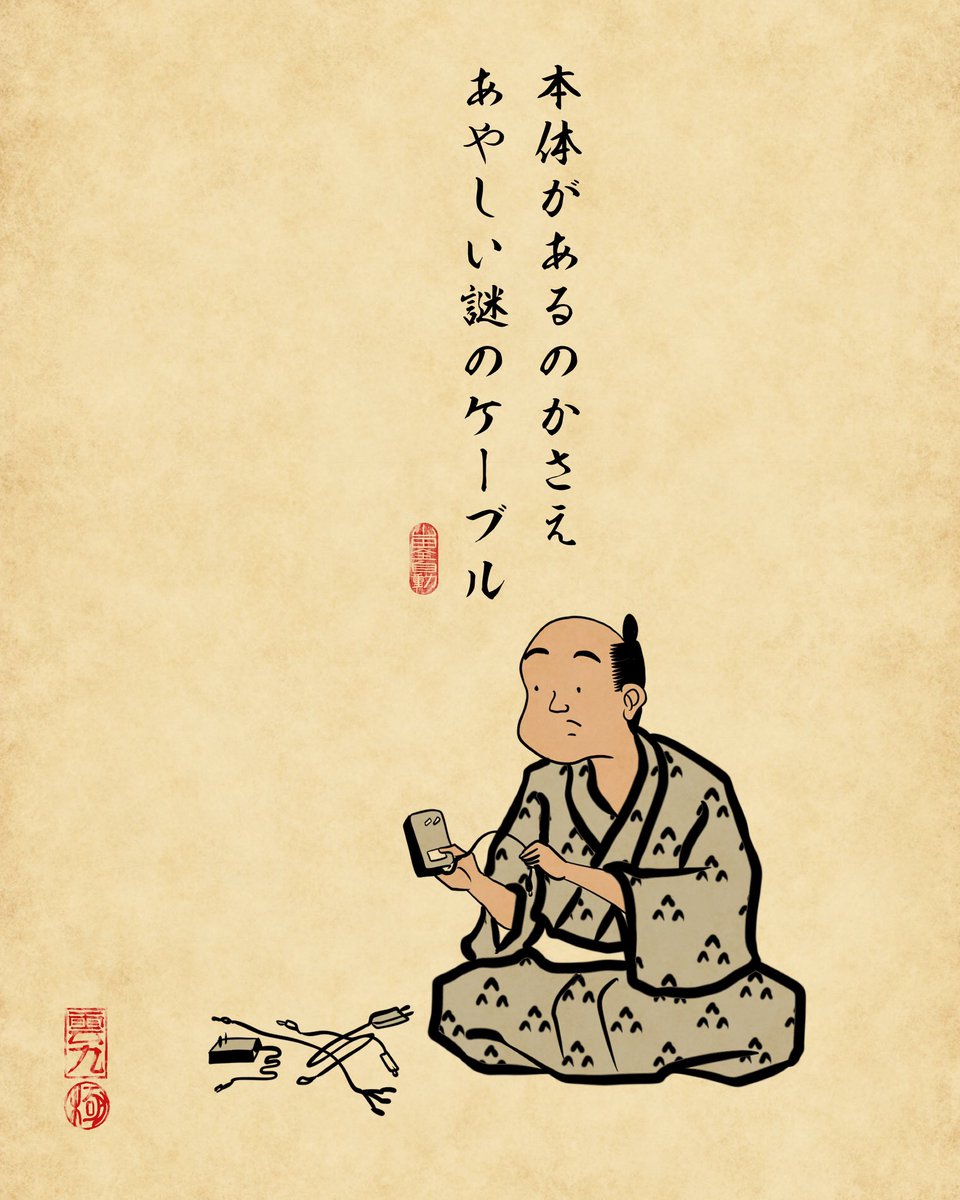 本体があるのかさえ
あやしい謎のケーブル